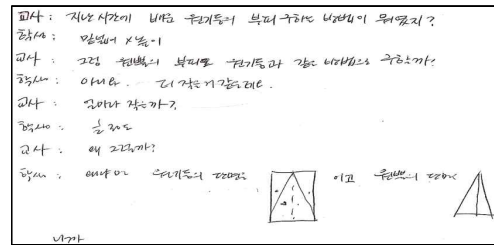 교사 : 지난 시간에 배운 원기둥의 부피 구하는 방법이 뭐였지?
학생 : 밑넓이 × 높이
교사 : 그럼 원뿔의 부피도 원기둥과 같은 방법으로 구할까?
학생 : 아니요. 더 작은거 같은데요.
교사 : 얼마나 작을까?
학생 : 정도
교사 : 왜 그럴까?
학생 : 왜냐면 원기둥의 단면은 이고 원뿔의 단면은
니까